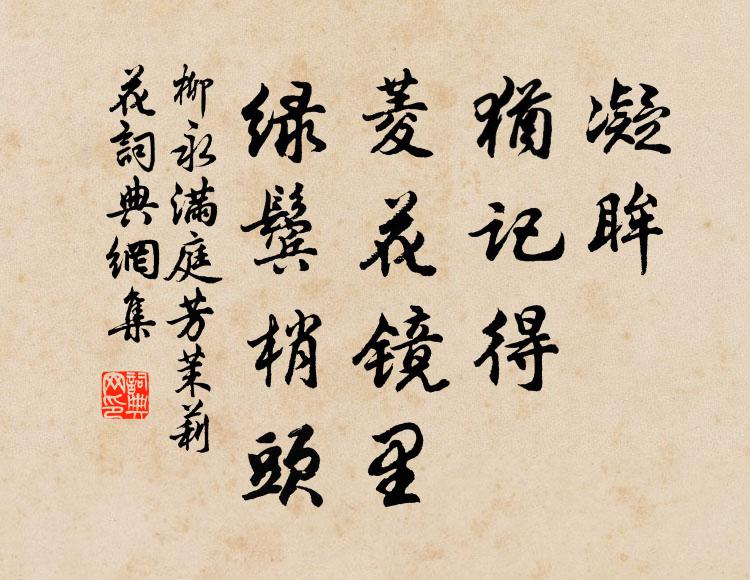 凝眸
猶记得
菱花镜里
绿鬓梢頭
柳永满庭芳茉莉
花詞典網集
詞典网印